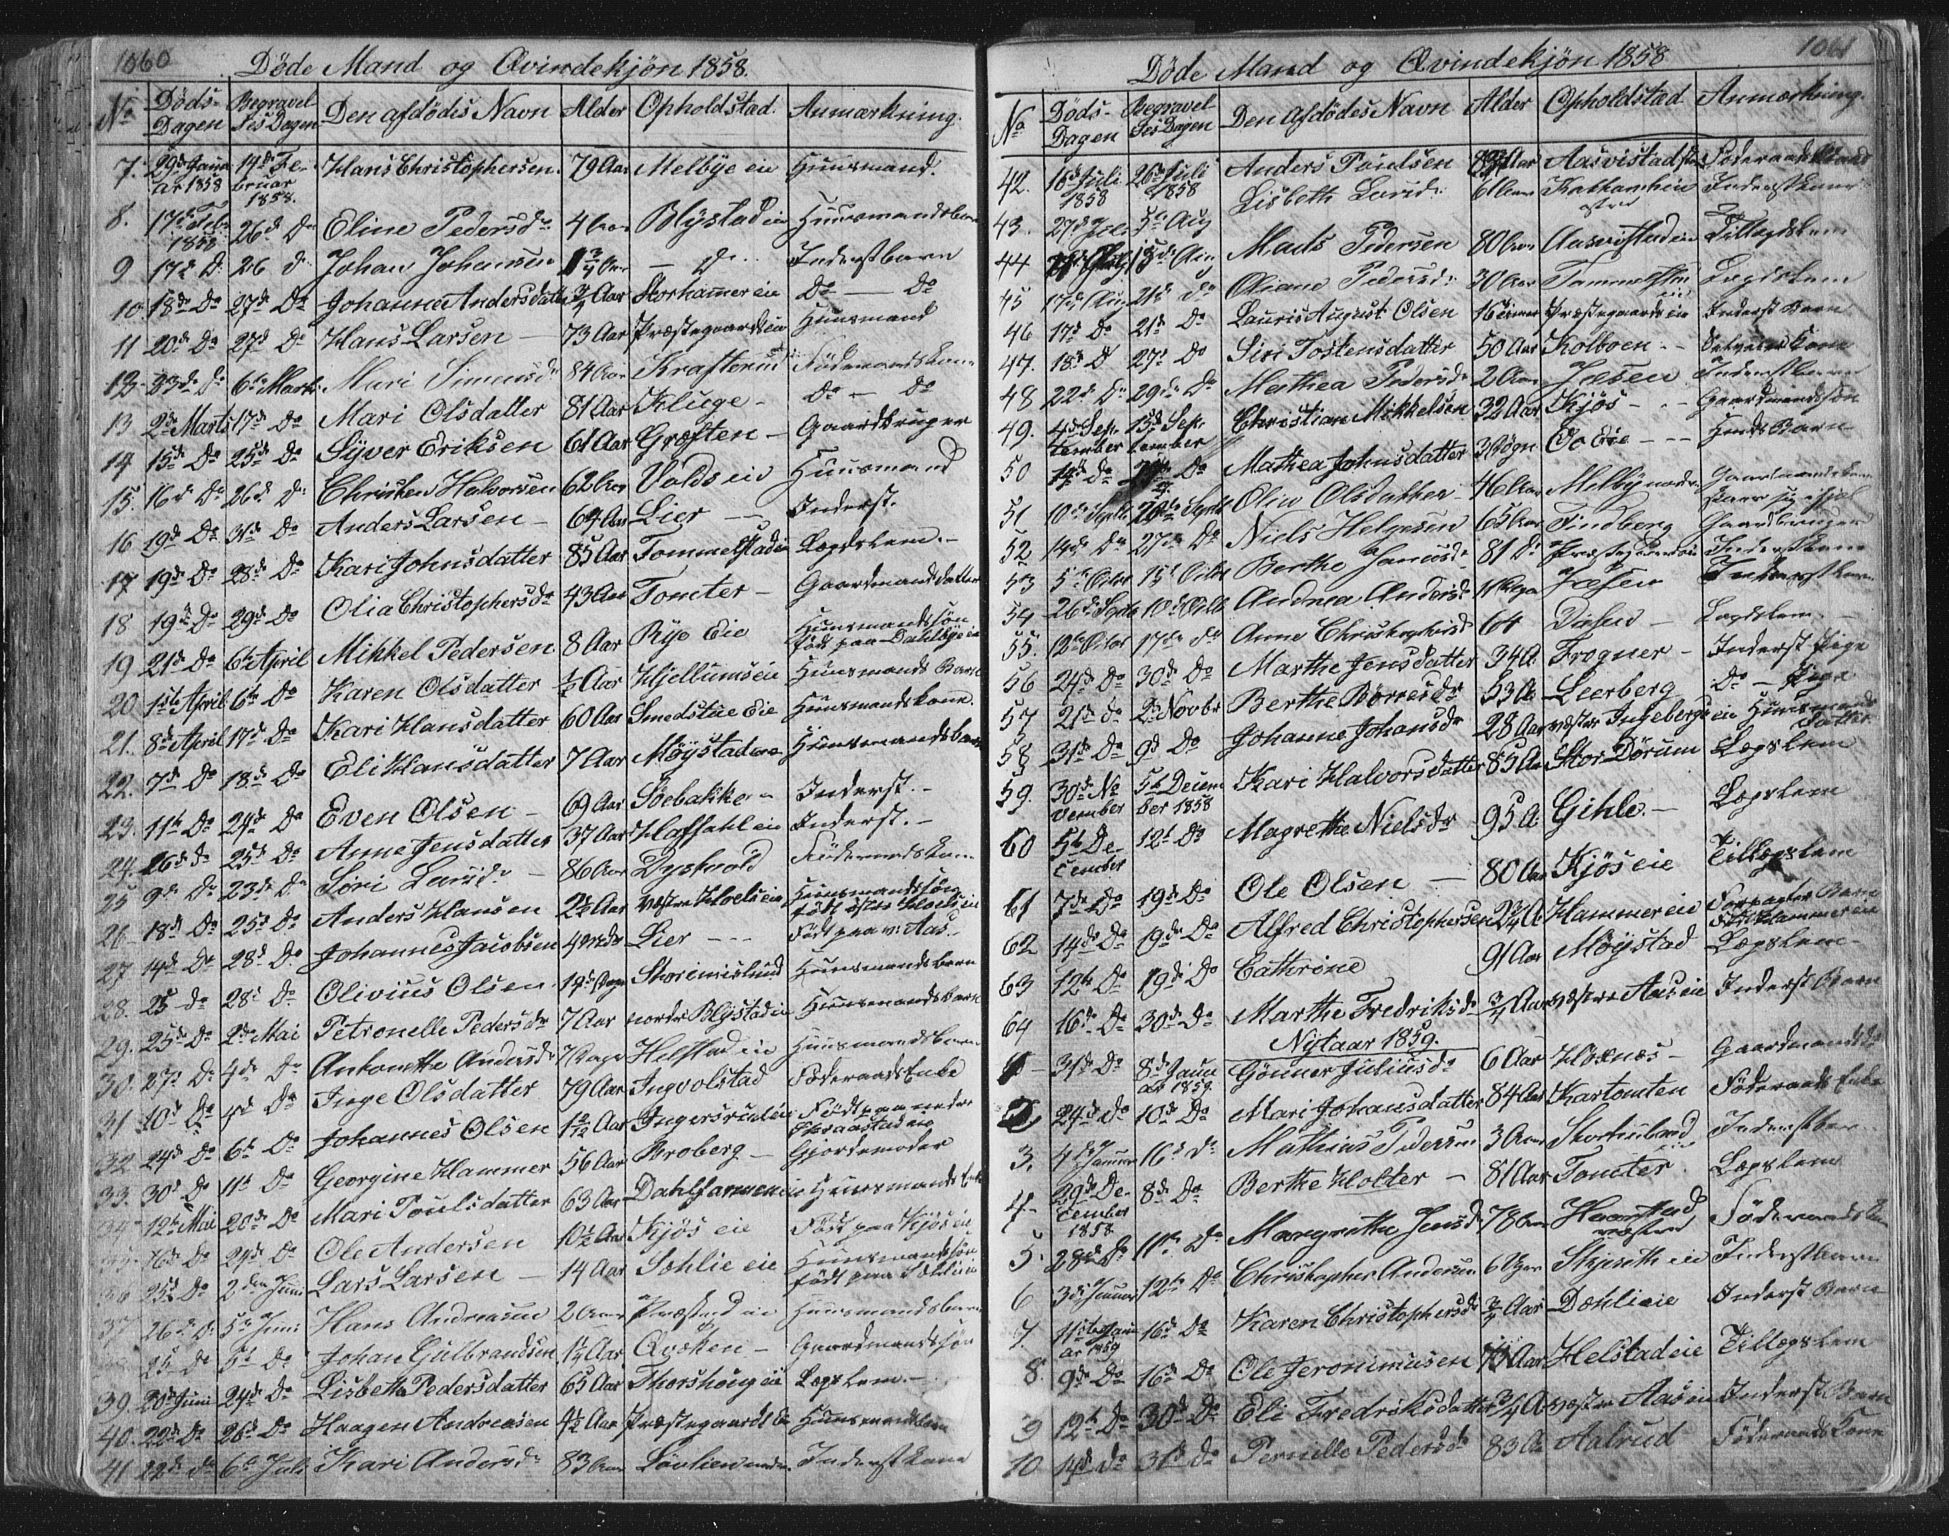 1060
Døde Mand og Qvindekjön 1858.
No Døds-Dagen Begravelses Dagen Den afdødes Navn Alder Opholdstad Anmærkning.
7. 29de Januar 1858 14de Februar 1858. Hans Christophersen 79 Aar Melbye eie Huusmand.
8. 17de Feb. 1858 26de Do Eline Pedersdr 4 Aar Blystad eie Huusmandsbarn
9 17de Do 26 do Johan Johansen 1 3/4 Aar — do Inderstbarn
10. 18de Do 27de Do Johanne Andersdatter 3/4 Aar Storhamer eie Do — Do
11 20de Do 27de Do Hans Larsen — 73 Aar Præstegaards eie Huusmand
13. 23de do 6te Marts Mari Simensdr 84 Aar Krafterud Föderaadskone
13 2de Marts 17de Do Mari Olsdatter 81 Aar Kluge — Do — Do
14 15de Do 25de Do Syver Eriksen 61 Aar Græften — Gaardbruger
15. 16de Do 26de Do Christen Halvorsen 62 Aar Volds eie Huusmand
16 19de Do 31de Do Anders Larsen — 64 Aar Lier — Inderst.
17 19de Do 28de Do Kari Johnsdatter 85 Aar Tommelstad eie Lægdslem. —
18 19de Do 29de Do Olia Christophersdr 43 Aar Tomter — Gaardmandsdatter
19 21de Do 6te April Mikkel Pedersen 8 Aar Rye Eie Huusmandssön född paa Dahlbye eie
20. 1ste April 6te Do Karen Olsdatter 1/2 Aar Hjellums eie Huusmands Barn
21. 8de April 17de Do Kari Hansdatter 60 Aar Smedstue Eie Huusmandskone.
22. 7de Do 18de Do Eli Hansdatter 7 Aar Möystad eie Huusmandsbarn
23. 11te Do 24de Do Even Olsen — 69 Aar Soebakke — Inderst. —
24. 26de do 25de Do Anne Jensdatter 37 Aar Haffahl eie Inderst. —
25 9de Do 23de Do Siri Larsdr — 86 Aar Dystvold Föderaadskone
26 18de Do 25de Do Anders Hansen 2 1/2 Aar vestre Hoels eie Huusmandssön född östre Hoels eie
27 14de Do 28de Do Johannes Jacobsen 4 Lier — Född paa v. Aas.
28. 25 Do 28de Do Olivius Olsen 14 Dage Skoremislund Huusmandsbarn
29. 25de Do 2de Mai Petronelle Pedersdr 7 Aar nordre Blystad eie Huusmandsbarn
30. 27de Do 4de Do Antonette Andersdr 7 Dage Helstad eie Huusmandsbarn
31 10de Do 4de Do Inge Olsdatter 79 Aar Ingvolstad Föderaads Enke
32 24de Do 6te Do Johannes Olsen Ingersrud eie Född paa nedre
33. 30de Do 11te Do Georgine Hammer 56 Aar Broberg — Gjordemoder
34 12te Mai 20de Do Mari Poulsdatter 63 Aar Dahlfarmen eie Huusmands Enke
16de Do 29de Do Ole Andersen 10 1/2 Aar Kjös eie Född paa Kjös eie
36 25de Do 2den Juni Lars Larsen — 14 Aar Sohlie eie Huusmandssön född paa Sohlie eie
37 26de Do 5te Juni Hans Andreasen 2 Aar Præsterud eie Huusmandsbarn
25 Do 5te Do Johan Gulbrandsen 1 1/2 Aar Qvæken — Gaardmandssön
39. 20de Juni 24de Do Lisbeth Pedersdatter 65 Aar Thorshoug eie Lægslem. —
40. 22de Do 26de Do Haagen Andreasen 4 1/2 Aar Præstegaards Eie Huusmandsbarn
41 22de do 6te Juli Kari Andersdr 83 Aar Lövlien nedre Inderstkone
1061
Døde Mand og Qvindekjön 1858
No Døds-Dagen Begravelses Dagen Den Afdødes Navn Alder Opholdstad Anmærkning.
42. 16de Juli 1858 26de Juli 1858 Anders Poulsen Aar Aasvistad Föderaads Mand
43. 27de Juli 5te Aug Lisbeth Larsdr 61 Aar Inderstkone
44 15de Aug Mads Pedersen 80 Aar Aasvistad eie Tillægslem
45 17de Aug 21de Do Oliane Pedersdr 30 Aar Tommelstad eie Lægdslem
46 17de Do 21de Do Lauris August Olsen 16 Præstegaards eie Inderst Barn
47. 18de D 27de Do Siri Tostensdatter 50 Aar Kolboen —
48 22de Do 29de Do Mathea Pedersdr 2 Aar Jæsen Inderstbarn
49. 4de September 13de September Christian Mikkelsen 32 Aar Kjös — Gaardmandssön
50 14de Do Do Mathea Johnsdatter 3 Dogn Do Eie — Huusds Barn
51 10de Septbr Septbr Olia Olsdatter — 46 Aar Melby nordre
52 14de Do 27de Do Niels Helgesen 65 Aar Findberg Gaardbruger
53 5te Octbr 15de Octbr Berthe Hansdr 81 Do Præstegaards eie Inderstkone
54 26de Septbr 10de Octbr Andrea Andersdr Jæsen Inderstbarn
55. 12te Octbr 17de do Anne Christophersdr 64 Dæhn — Lægdslem —
56 24de Do 30de Do Marthe Jensdatter 34 A. Frogner — Inderst Pige
57 21de do 2de Novbr Berthe Börresdr 53 Aar Leerberg Do — Pige
58 31de Do 9de Do Johanne Johansdr 28 Aar vestre Ingeberg eie Huusmands Datter
59. 30de November 5te December 1858 Kari Halvorsdatter 85 Aar Stor Dörum Lægslem
60 5te December 12te Do Magrethe Nielsdr 95 A. Gihle. — Lægslem
61 7de Do 19de Do Ole Olsen — 80 Aar Kjös eie Tillægslem
62 14de Do 19de Do Alfred Christophersen 2 3/4 A Hammer eie Forpagter Barn född Hammer eie
63 12te Do 19de Do Cathrine 91 Aar Möystad Lægslem —
64 16de Do 30de Do Marthe Fredriksdr 3/4 Aar vestre Aas eie Inderst Barn
Nytaar 1859.
1 31de Do 8de Januar 1859. Gönner Juliusdr 6 Aar Hoxnæs — Gaardmandsdr
2 24de Do 10de Do Mari Johansdatter 84 Aar Kartomten Föderaads Enke
3. 4de Januar 16de Do Mathias Pedersen 3 Aar Skorteubræd Inderstbarn
4. 29de December 1858 8de Do Berthe Holter — 81 Aar Tomter Lægslem
5. 28de Do 11te Do Margrethe Jensdr 78 Aar Haarstad vestre Föderaads
6 3de Januar 12te Do Christopher Andersen Skjæseth eie Inderstbarn
7. 11te Januar 1859 16de Do Karen Christophersdr 3/4 Aar Dæhlie eie Inderst Barn
8. 9de Do 16de Do Ole Jeronimusen 73 Aar Helstad eie Tillægslem
9 12te Do 30de Do Eli Fredriksdatter 3/4 A vestre Aas eie Inderst Barn
10 14de Do 31de Do Pernille Pedersdr 83 Aar Aalrud Föderaads Kone